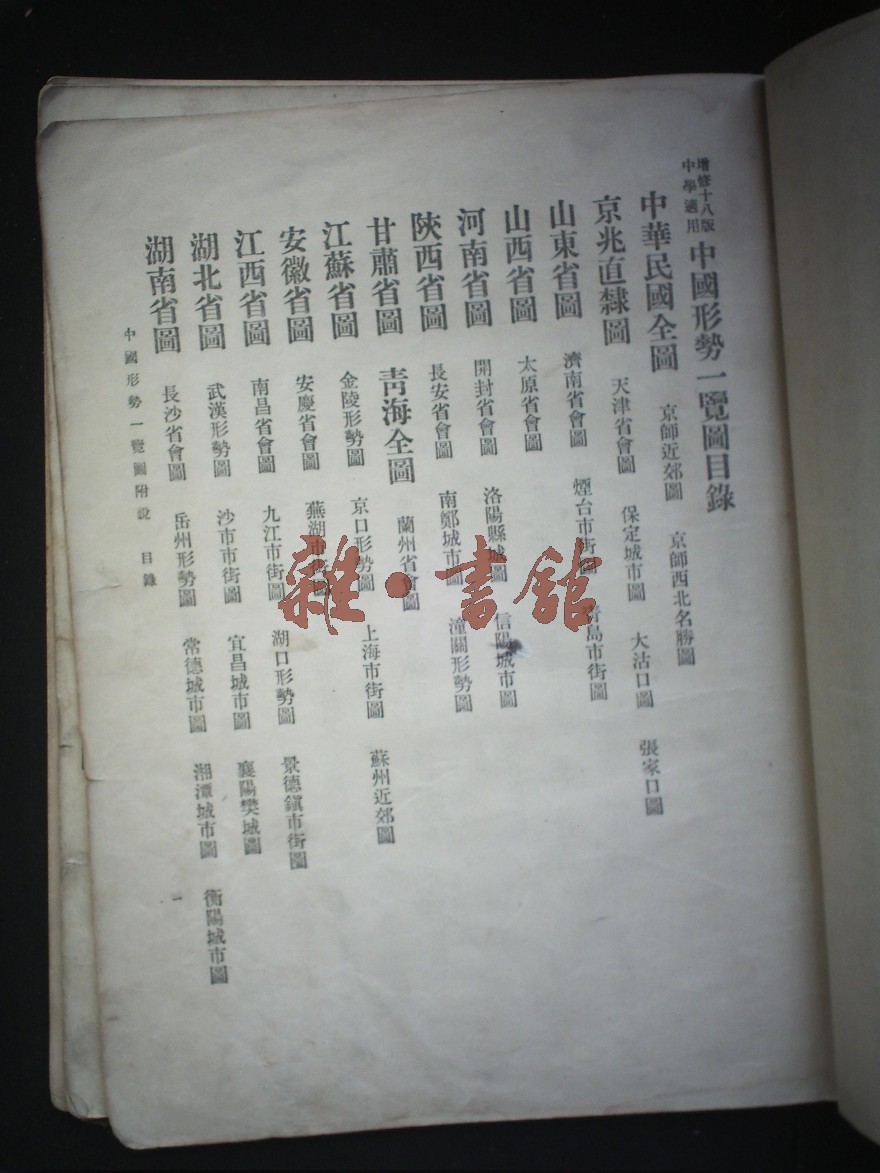 增修十八版中學適用 中國形勢一覽圖目錄
中華民國全圖 京師近郊圖 京師西北名勝圖
京兆直隸圖 天津省會圖 保定城市圖 大沽口圖 張家口圖
山東省圖 濟南省會圖 煙台市街圖 青島市街圖
山西省圖 太原省會圖
河南省圖 開封省會圖 洛陽縣城圖 信陽城市圖
陝西省圖 長安省會圖 南鄭城市圖 潼關形勢圖
甘肅省圖 青海全圖 蘭州省會圖
江蘇省圖 金陵形勢圖 京口形勢圖 上海市街圖 蘇州近郊圖
安徽省圖 安慶省會圖 蕪湖市街圖
江西省圖 南昌省會圖 九江市街圖 湖口形勢圖 景德鎮市街圖
湖北省圖 武漢形勢圖 沙市市街圖 宜昌城市圖 襄陽樊城圖
湖南省圖 長沙省會圖 岳州形勢圖 常德城市圖 湘潭城市圖 衡陽城市圖
中國形勢一覽圖附說 目錄 一
雜·書館